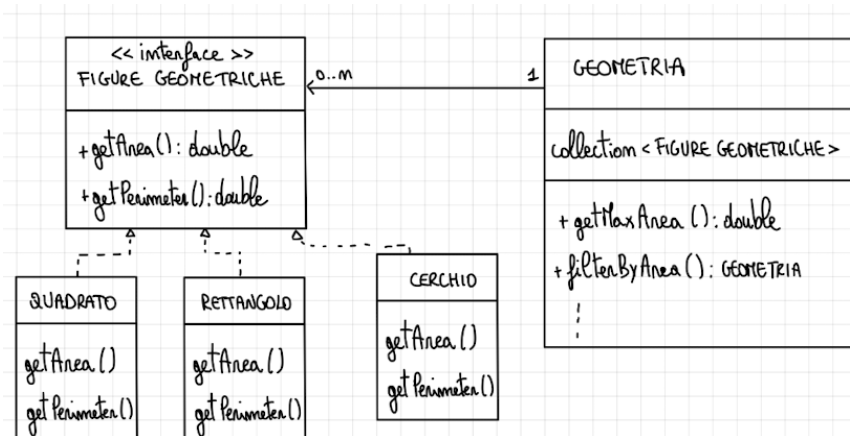 << interface >>
FIGURE GEOMETRICHE
+ getArea(): double
+ getPerimeter(): double
0..n
1
GEOMETRIA
collection < FIGURE GEOMETRICHE >
+ getMaxArea(): double
+ filterByArea(): GEOMETRIA
QUADRATO
getArea()
getPerimeter()
RETTANGOLO
getArea()
getPerimeter()
CERCHIO
getArea()
getPerimeter()